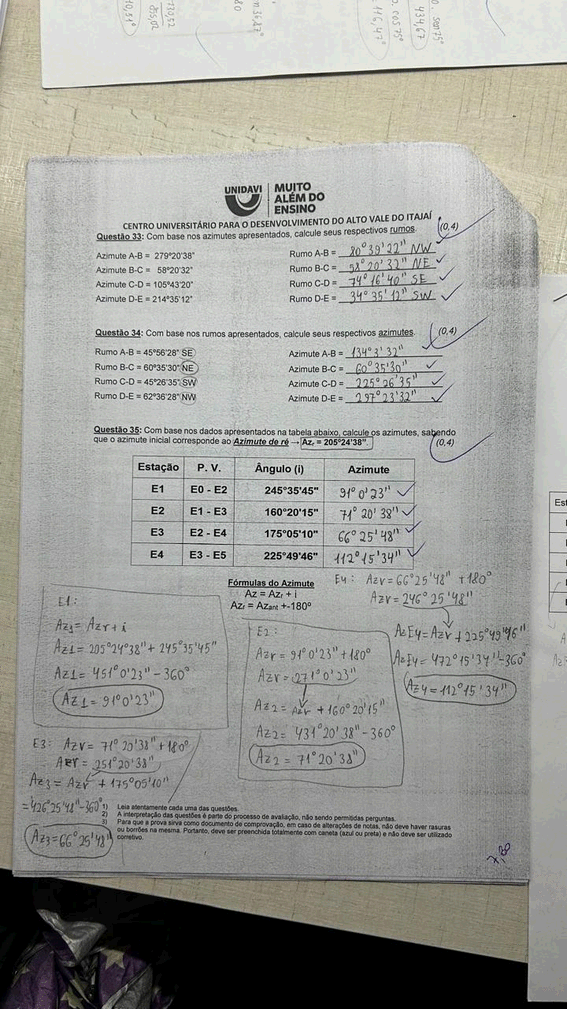 UNIDAVI
MUITO
ALÉM DO
ENSINO
CENTRO UNIVERSITÁRIO PARA O DESENVOLVIMENTO DO ALTO VALE DO ITAJAÍ
Questão 33: Com base nos azimutes apresentados, calcule seus respectivos rumos.
(0,4)
Azimute A-B = 279°20'38" Rumo A-B = 80° 39' 22" NW
Azimute B-C = 58°20'32" Rumo B-C = 58° 20' 32" NE
Azimute C-D = 105°43'20" Rumo C-D = 74° 16' 40" SE
Azimute D-E = 214°35'12" Rumo D-E = 34° 35' 12" SW
Questão 34: Com base nos rumos apresentados, calcule seus respectivos azimutes.
(0,4)
Rumo A-B = 45°56'28" SE Azimute A-B = 134° 3' 32"
Rumo B-C = 60°35'30" NE Azimute B-C = 60° 35' 30"
Rumo C-D = 45°26'35" SW Azimute C-D = 225° 26' 35"
Rumo D-E = 62°36'28" NW Azimute D-E = 297° 23' 32"
Questão 35: Com base nos dados apresentados na tabela abaixo, calcule os azimutes, sabendo
que o azimute inicial corresponde ao Azimute de ré → Azr = 205°24'38"
(0,4)
Estação P. V. Ângulo (i) Azimute
E1 E0 - E2 245°35'45" 91° 0' 23"
E2 E1 - E3 160°20'15" 71° 20' 38"
E3 E2 - E4 175°05'10" 66° 25' 48"
E4 E3 - E5 225°49'46" 112° 15' 34"
Fórmulas do Azimute
Az = Azr + i
Azr = Azant +-180°
E1:
Az1 = Azr + i
Az1 = 205°24'38" + 245°35'45"
Az1 = 451°0'23" - 360°
Az1 = 91°0'23"
E2:
Azr = 91°0'23" + 180°
Azr = 271°0'23"
Az2 = Azr + 160°20'15"
Az2 = 431°20'38" - 360°
Az2 = 71°20'38"
E4: Azr = 66°25'48" + 180°
Azr = 246°25'48"
AzE4 = Azr + 225°49'46"
AzE4 = 472°15'34" - 360°
Az4 = 112°15'34"
E3: Azr = 71°20'38" + 180°
Azr = 251°20'38"
Az3 = Azr + 175°05'10"
= 426°25'48" - 360°
Az3 = 66°25'48"
1) Leia atentamente cada uma das questões.
2) A interpretação das questões é parte do processo de avaliação, não sendo permitidas perguntas.
3) Para que a prova sirva como documento de comprovação, em caso de alterações de notas, não deve haver rasuras
ou borrões na mesma. Portanto, deve ser preenchida totalmente com caneta (azul ou preta) e não deve ser utilizado
corretivo.